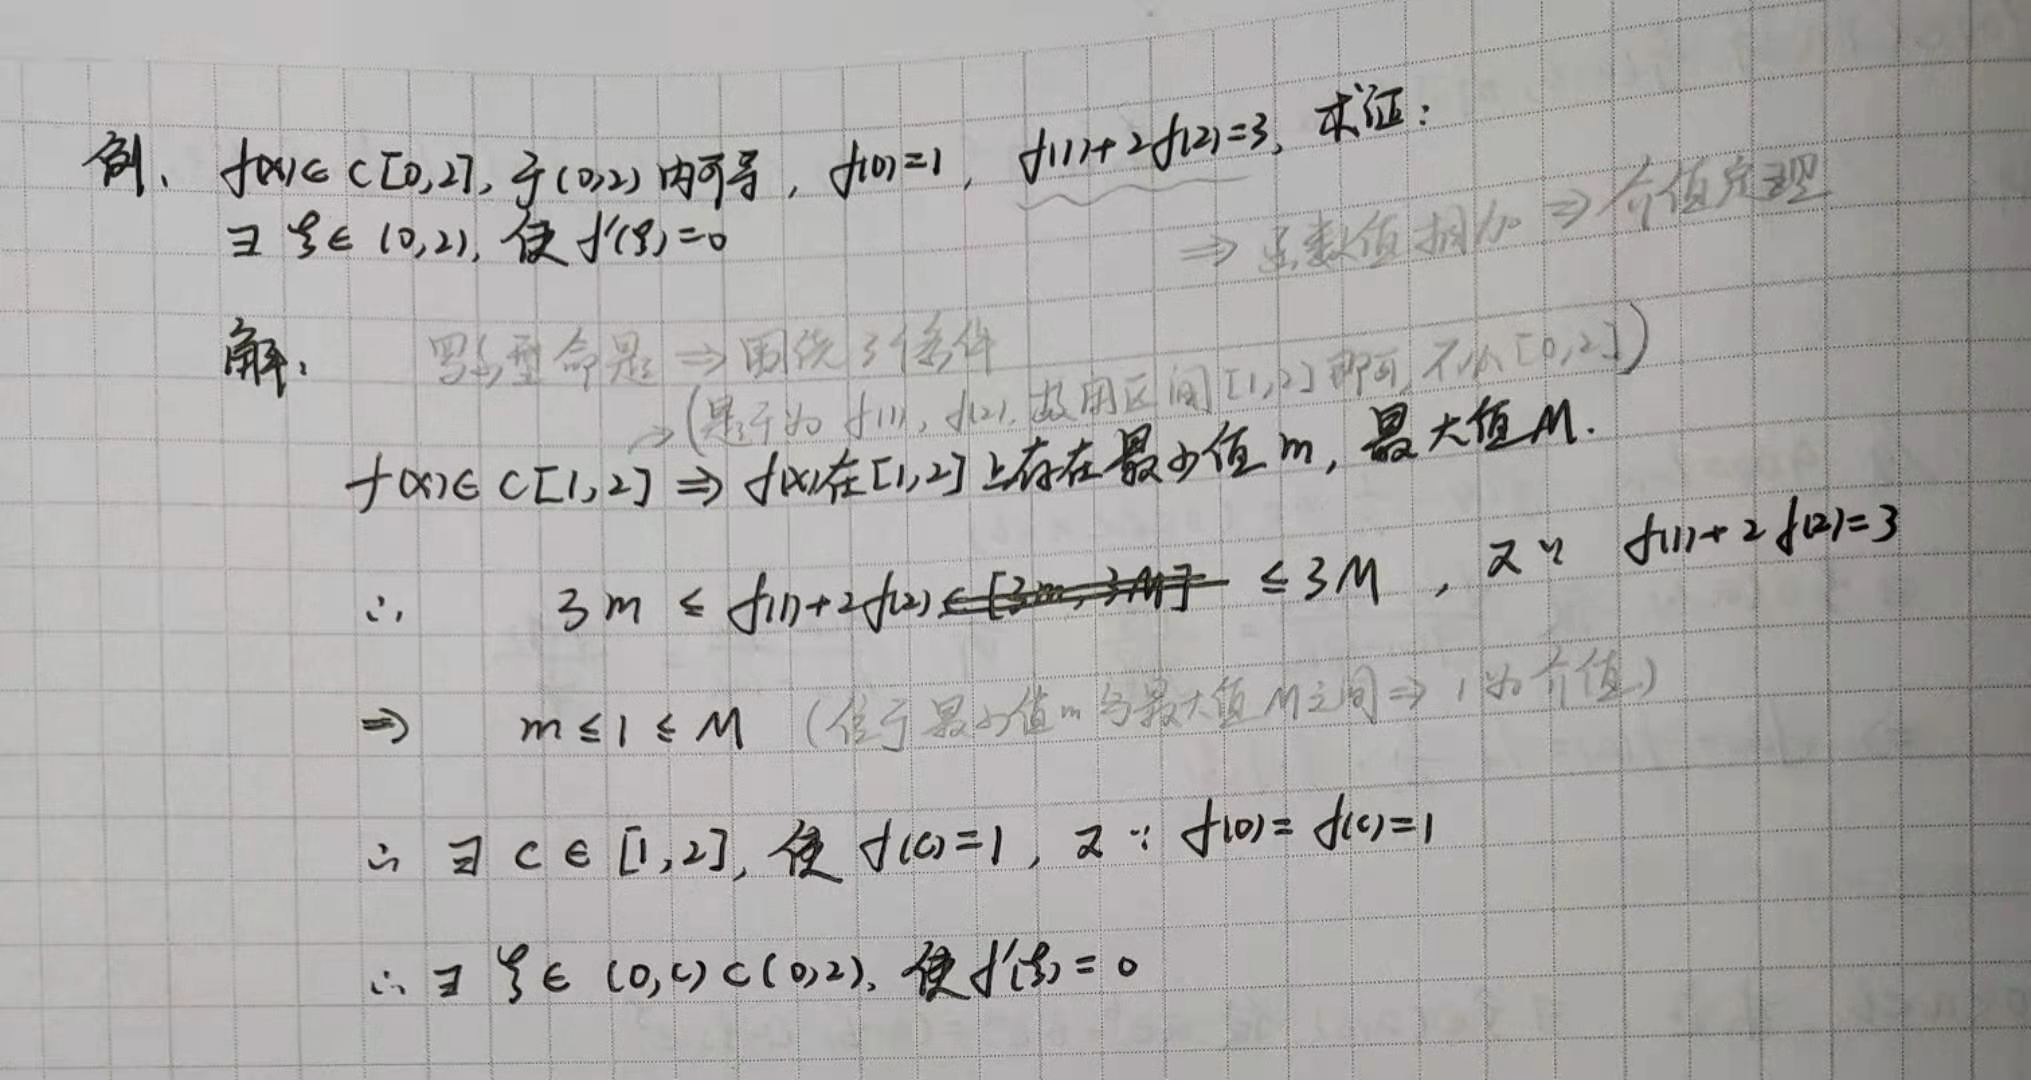 例、f(x)∈C[0,2],于(0,2)内可导,f(0)=1,f(1)+2f(2)=3,求证:
∃ ξ∈(0,2),使f'(ξ)=0
⇒函数值相加⇒介值定理
解: 罗尔型命题⇒围绕3个条件
→(是于为f(1),f(2),故用区间[1,2]即可,不从[0,2])
f(x)∈C[1,2]⇒f(x)在[1,2]上存在最小值m,最大值M.
∴ 3m≤f(1)+2f(2)∈[3m,3M]≤3M,又∵f(1)+2f(2)=3
⇒ m≤1≤M (位于最小值m与最大值M之间⇒1为介值)
∴∃ C∈[1,2],使f(c)=1,又∵f(0)=f(c)=1
∴∃ ξ∈(0,c)⊂(0,2),使f'(ξ)=0